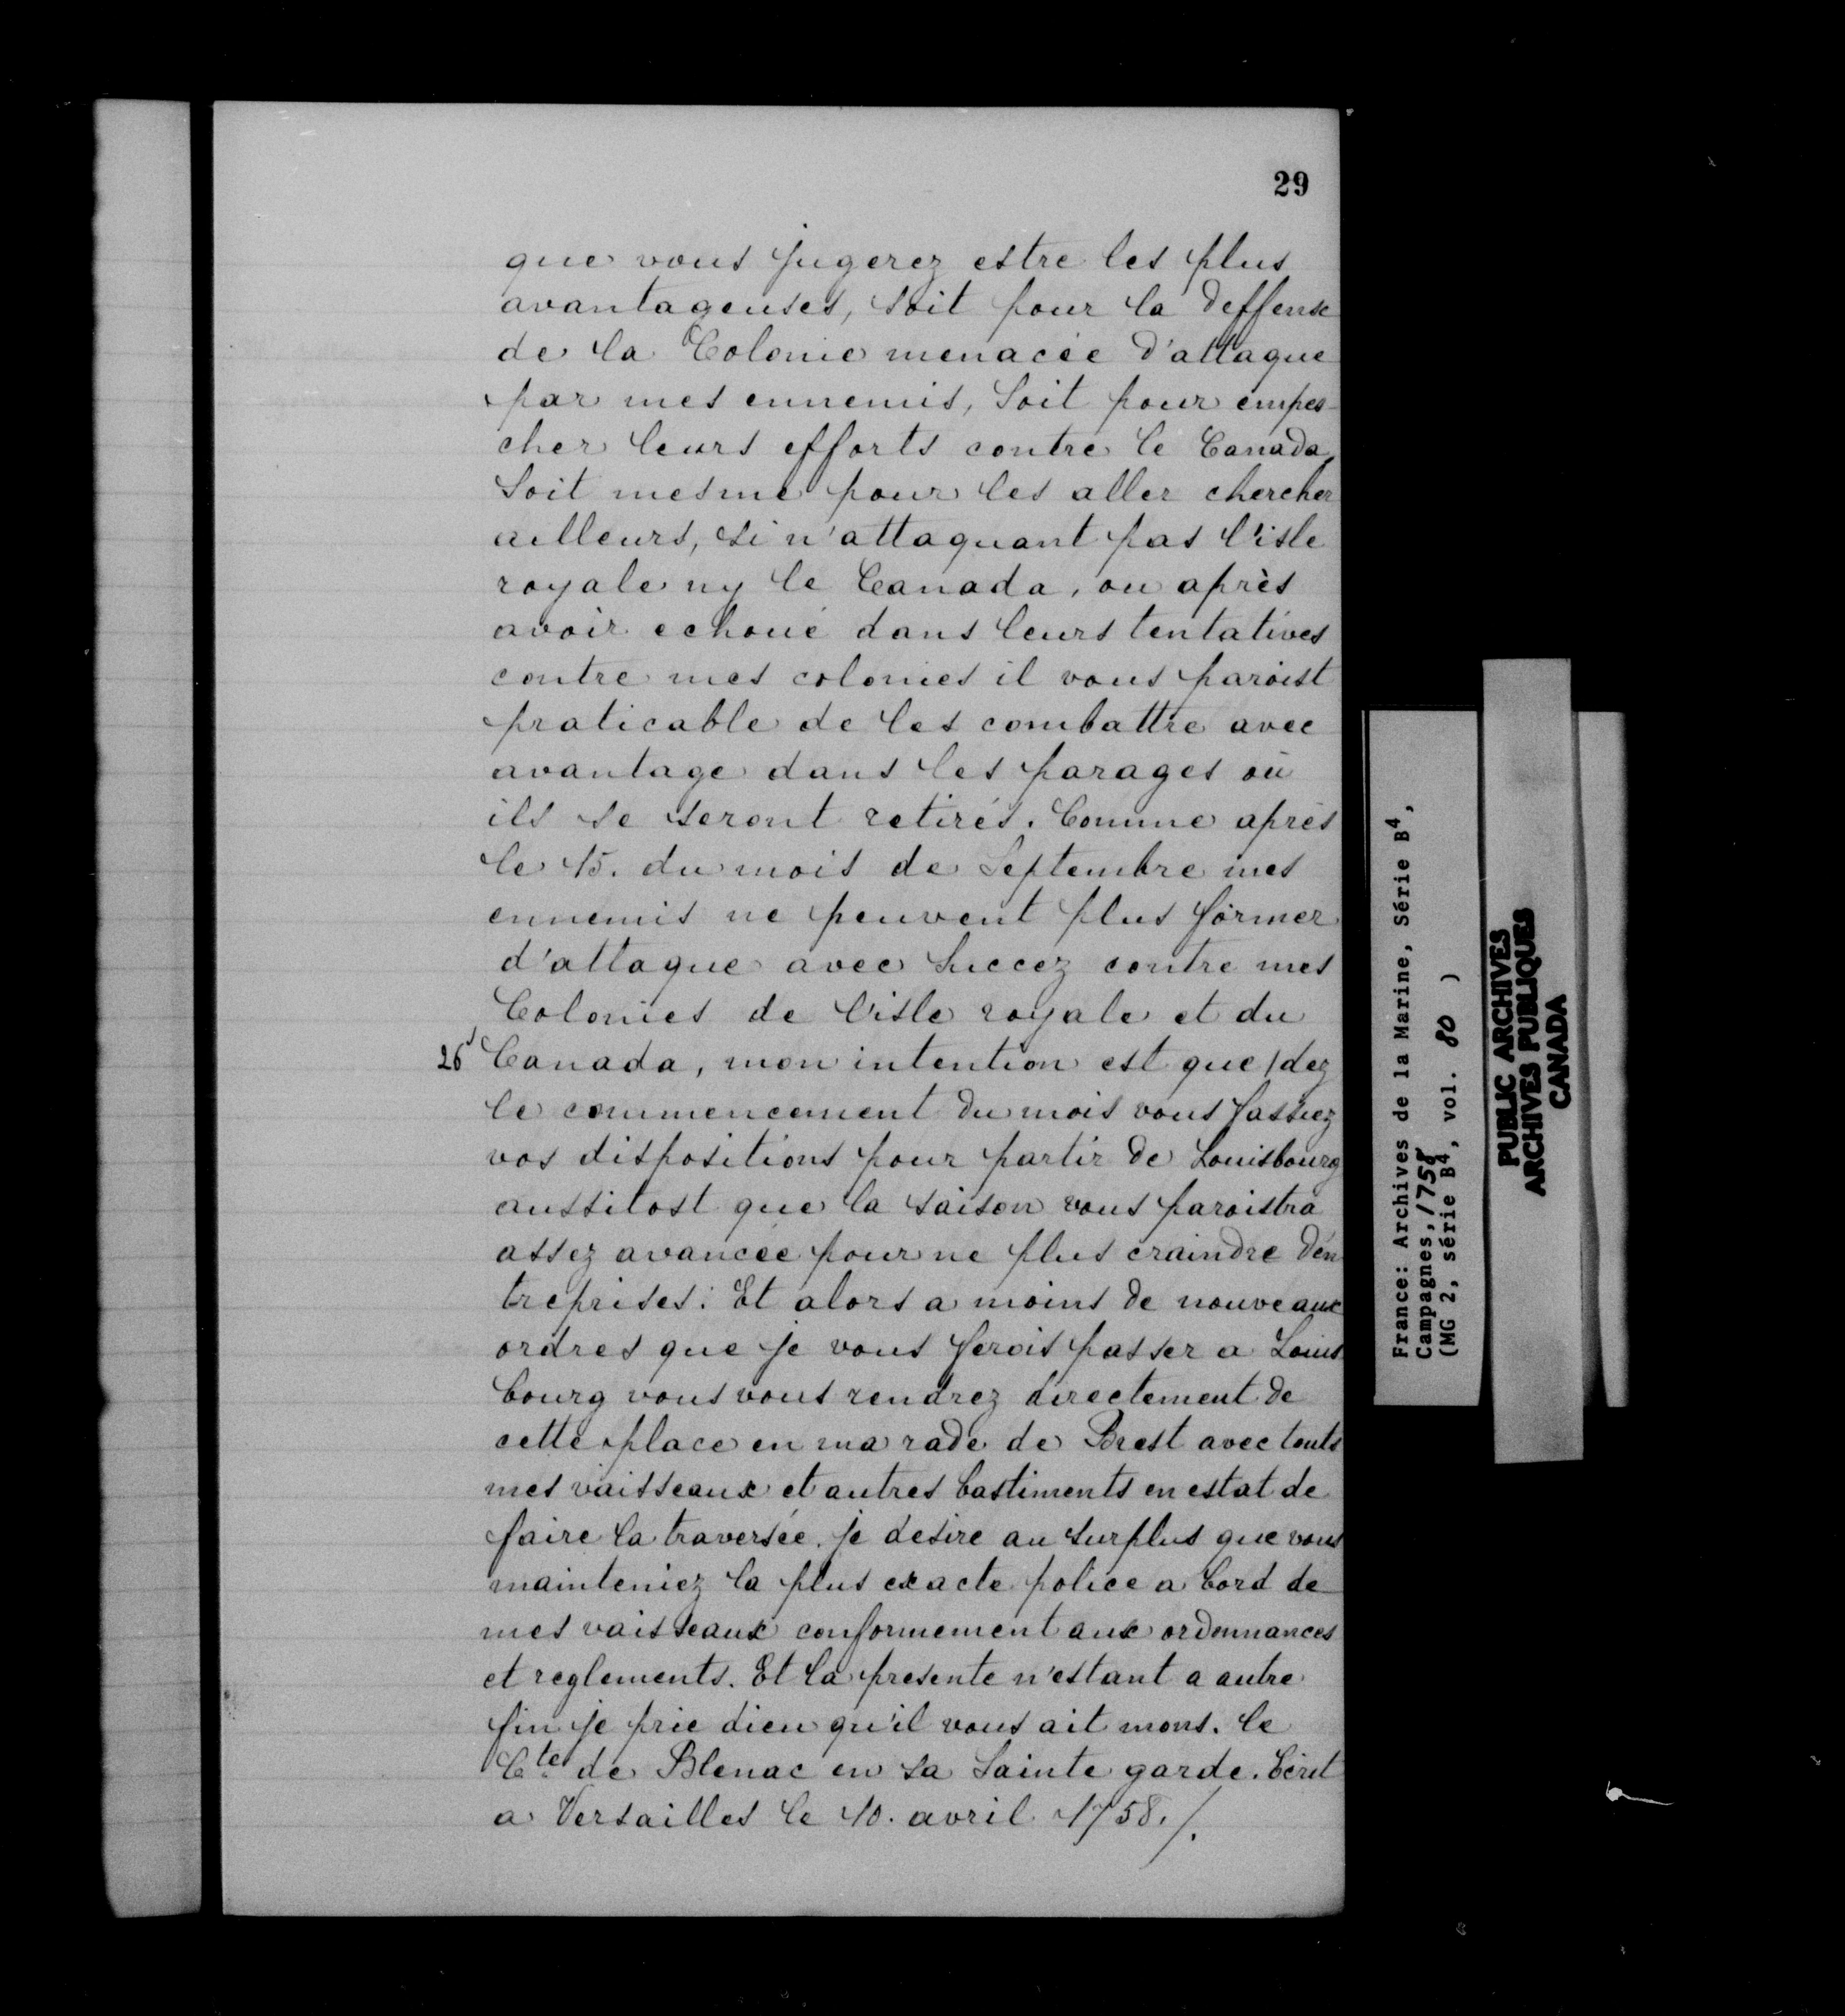 29
que vous jugerez estre les plus
avantageuses, soit pour la deffense
de la Colonie menacée d'attaque
par mes ennemis, soit pour empes-
cher leurs efforts contre le Canada,
Soit mesme pour les aller chercher
ailleurs, si n'attaquant pas l'isle
royale ny le Canada, ou après
avoir echoué dans leurs tentatives
contre mes colonies il vous paroist
praticable de les combattre avec
avantage dans les parages où
ils se seront retirés. Comme après
le 15. du mois de Septembre mes
ennemis ne peuvent plus former
d'attaque avec succez contre mes
Colonies de l'isle royale et du
26 Canada, mon intention est que / dez
le commencement du mois vous fassiez
vos dispositions pour partir de Louisbourg
aussitost que la saison vous paroistra
assez avancée pour ne plus craindre d'en
treprises. Et alors a moins de nouveaux
ordres que je vous ferois passer a Louis
bourg vous vous rendrez directement de
cette place en ma rade de Brest avec touts
mes vaisseaux et autres bastiments en estat de
faire la traversée. je desire au surplus que vous
mainteniez la plus exacte police a bord de
mes vaisseaux conformement aux ordonnances
et reglements. Et la presente n'estant a autre
fin je prie dieu qu'il vous ait mons. le
Cte de Blenac en sa Sainte garde. Ecrit
a Versailles le 10. avril 1758./.
France: Archives de la Marine, Série B4,
Campagnes, 1758
(MG 2, série B4, vol. 80 )
PUBLIC ARCHIVES
ARCHIVES PUBLIQUES
CANADA